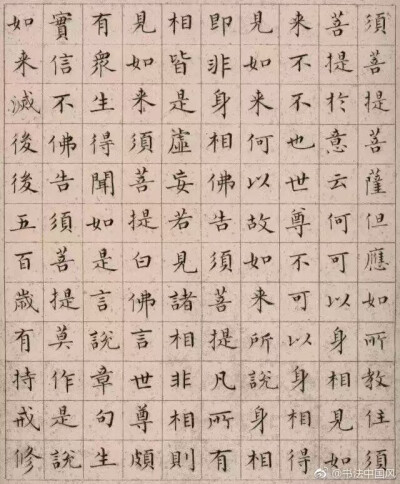 須菩提菩薩但應如所教住須
菩提於意云何可以身相見如
来不不也世尊不可以身相得
見如来何以故如来所說身相
即非身相佛告須菩提凡所有
相皆是虛妄若見諸相非相則
見如来須菩提白佛言世尊頗
有衆生得聞如是言說章句生
實信不佛告須菩提莫作是說
如来滅後後五百歲有持戒修
@书法中国风